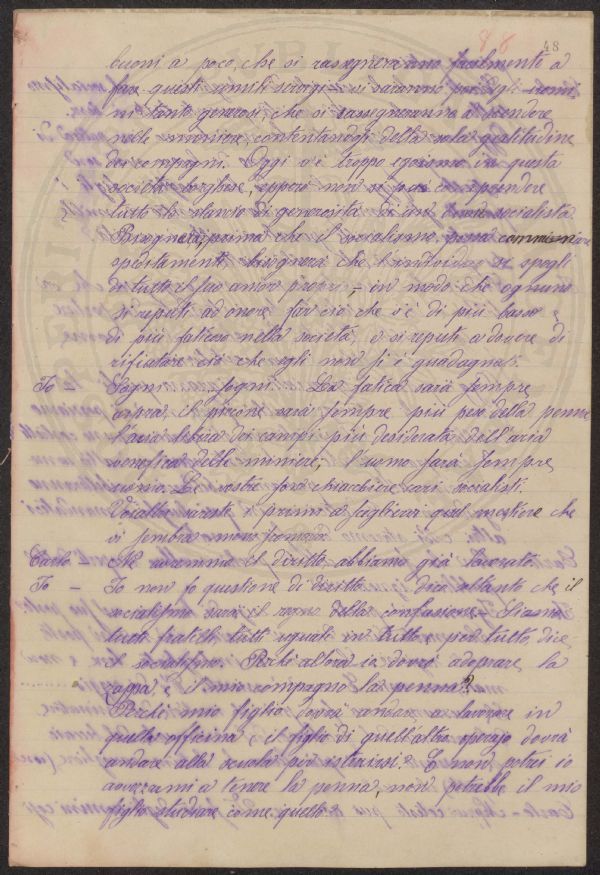 48
buoni a poco, che si rassegneranno facilmente a
fare questi umili servigi e vi saranno poi egli uomi
ni tanto generosi, che si rassegneranno a scendere
nelle miniere, contentandosi della sola gratitudine
dei compagni. Oggi v'è troppo egoismo in questa
società borghese, epperò non si può comprendere
tutto lo slancio di generosità di un buon socialista
Bisognerà, prima che il socialismo possa cominciare
speditamente, bisognerà che l'individuo si spogli
di tutto il suo amor proprio, in modo che ognuno
si reputi ad onore far ciò che v'è di più basso e
di più faticoso nella società, e si reputi a dovere di
rifiutare ciò che egli non si è guadagnato.
Io - Sogni sogni. La fatica sarà sempre
aspra, il piccone sarà sempre più peso della penna
l'aria libera dei campi più desiderata dell'aria
delle miniere, l'uomo sarà sempre
uomo. Le vostre son chiacchiere cari socialisti.
Voialtri sareste i primi a scegliervi quel mestiere che
vi sembra meno
Carlo - Ne avremmo il diritto, abbiamo già lavorato.
Io - Io non fo questione di diritto. Dico soltanto che il
socialismo sarà il regno della confusione. Siamo
tutti fratelli, tutti uguali in tutto e per tutto, dice
il socialismo. Perchè allora io dovrò adoprare la
zappa e il mio compagno la penna?
Perchè mio figlio dovrà andare a lavorare in
quella officina e il figlio di quell'altro operajo dovrà
andare alla scuola per istruirsi? E non potrei io
avvezzarmi a tenere la penna, non potrebbe il mio
figlio studiare come quello